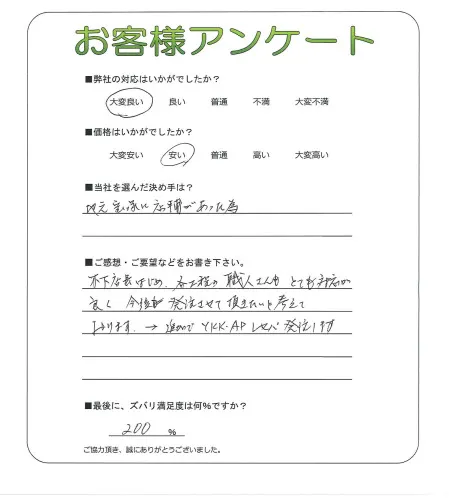 お客様アンケート
■弊社の対応はいかがでしたか?
大変良い 良い 普通 不満 大変不満
■価格はいかがでしたか?
大変安い 安い 普通 高い 大変高い
■当社を選んだ決め手は?
地元宝塚に店舗があった為
■ご感想・ご要望などをお書き下さい。
木下店長はじめ、各工程の職人さんも とても対応が
良く 今後も 発注させて頂きたいと考えて
おります。→ 追加で YKK・AP 発注します
■最後に、ズバリ満足度は何%ですか?
200 %
ご協力頂き、誠にありがとうございました。